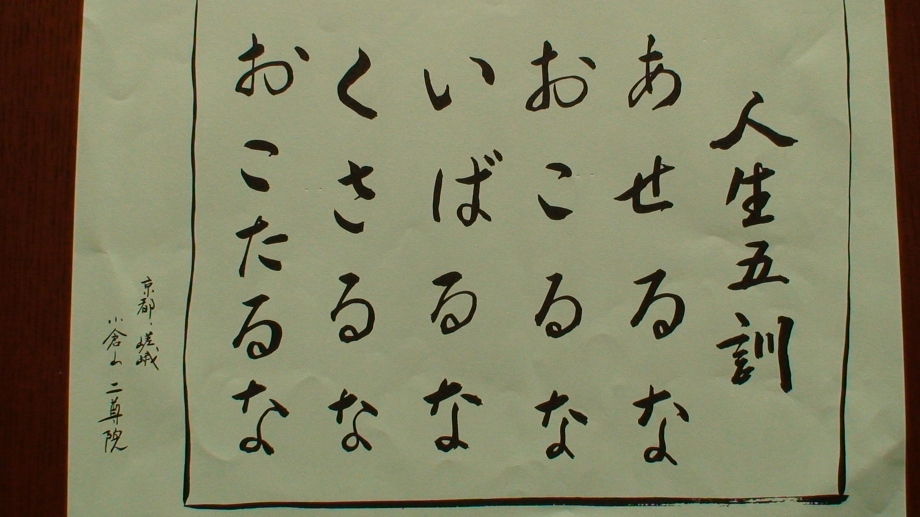 人生五訓
あせるな
おこるな
いばるな
くさるな
おこたるな
京都・嵯峨
小倉山 二尊院